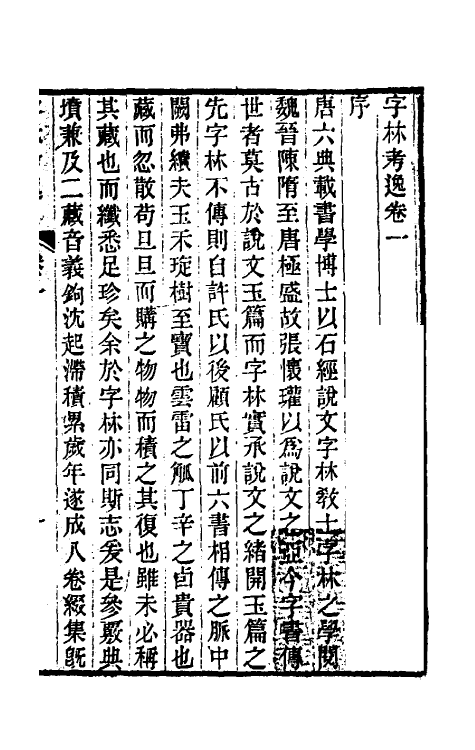 字林考逸卷一
序
唐六典載書學博士以石經說文字林敎士字林之學閱
魏晉陳隋至唐極盛故張懷瓘以爲說文之亞今字書傳
世者莫古於說文玉篇而字林實承說文之緒開玉篇之
先字林不傳則自許氏以後顧氏以前六書相傳之脈中
闕弗續夫玉禾琁樹至寶也雲雷之觚丁辛之卣貴器也
藏而忽散苟旦旦而購之物物而積之其復也雖未必稱
其藏也而纖悉足珍矣余於字林亦同斯志爰是參覈典
墳兼及二藏音義鉤沈起滯積累歲年遂成八卷綴集旣